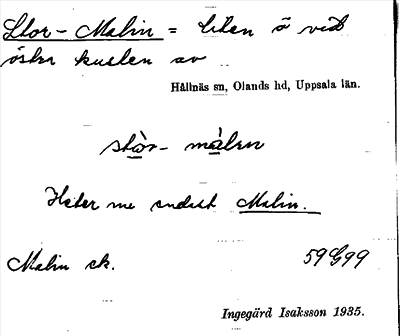 Stor-Malin = liten ö vid
östra kusten av
Hållnäs sn, Olands hd, Uppsala län.
stòr- målen
Heter nu endast Malin.
Malin ek. 59G99
Ingegärd Isaksson 1935.